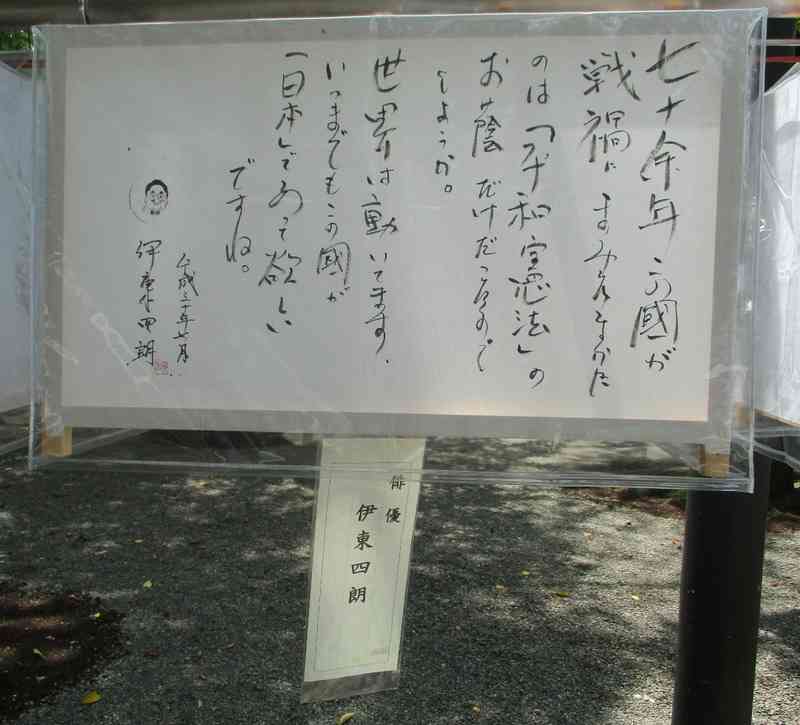 七十余年この國が
戦禍にまみえなかった
のは「平和憲法」の
お蔭だけだったので
しょうか。
世界は動いてます、
いつまでもこの國が
「日本」であって欲しい
ですね。
平成三十年七月
伊東四朗
俳優
伊東四朗